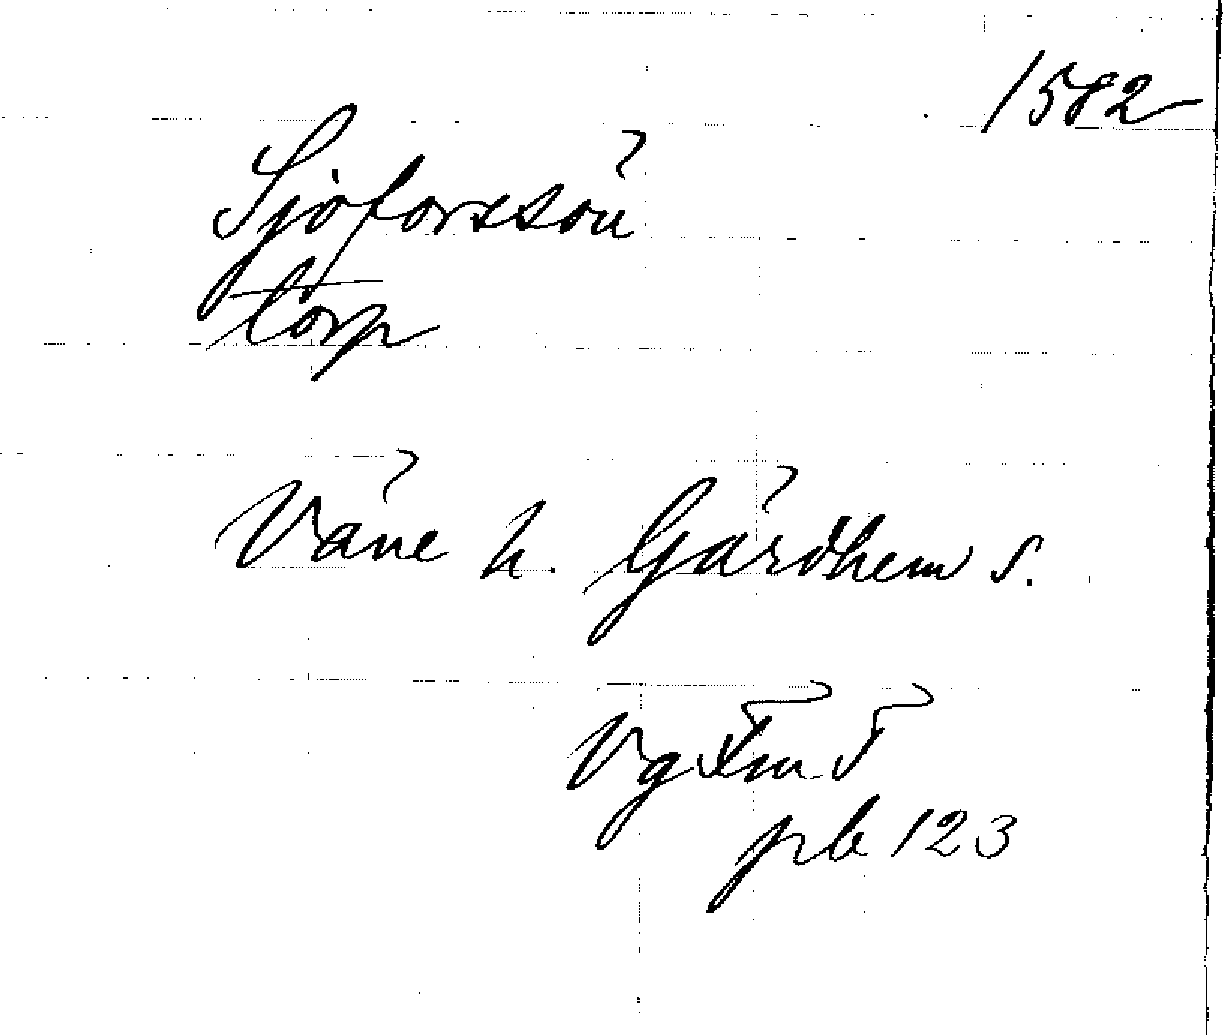 1582
Sjöforssön
torp
Väne h. Gärdhem s.
Vg Fm 5
pb 123